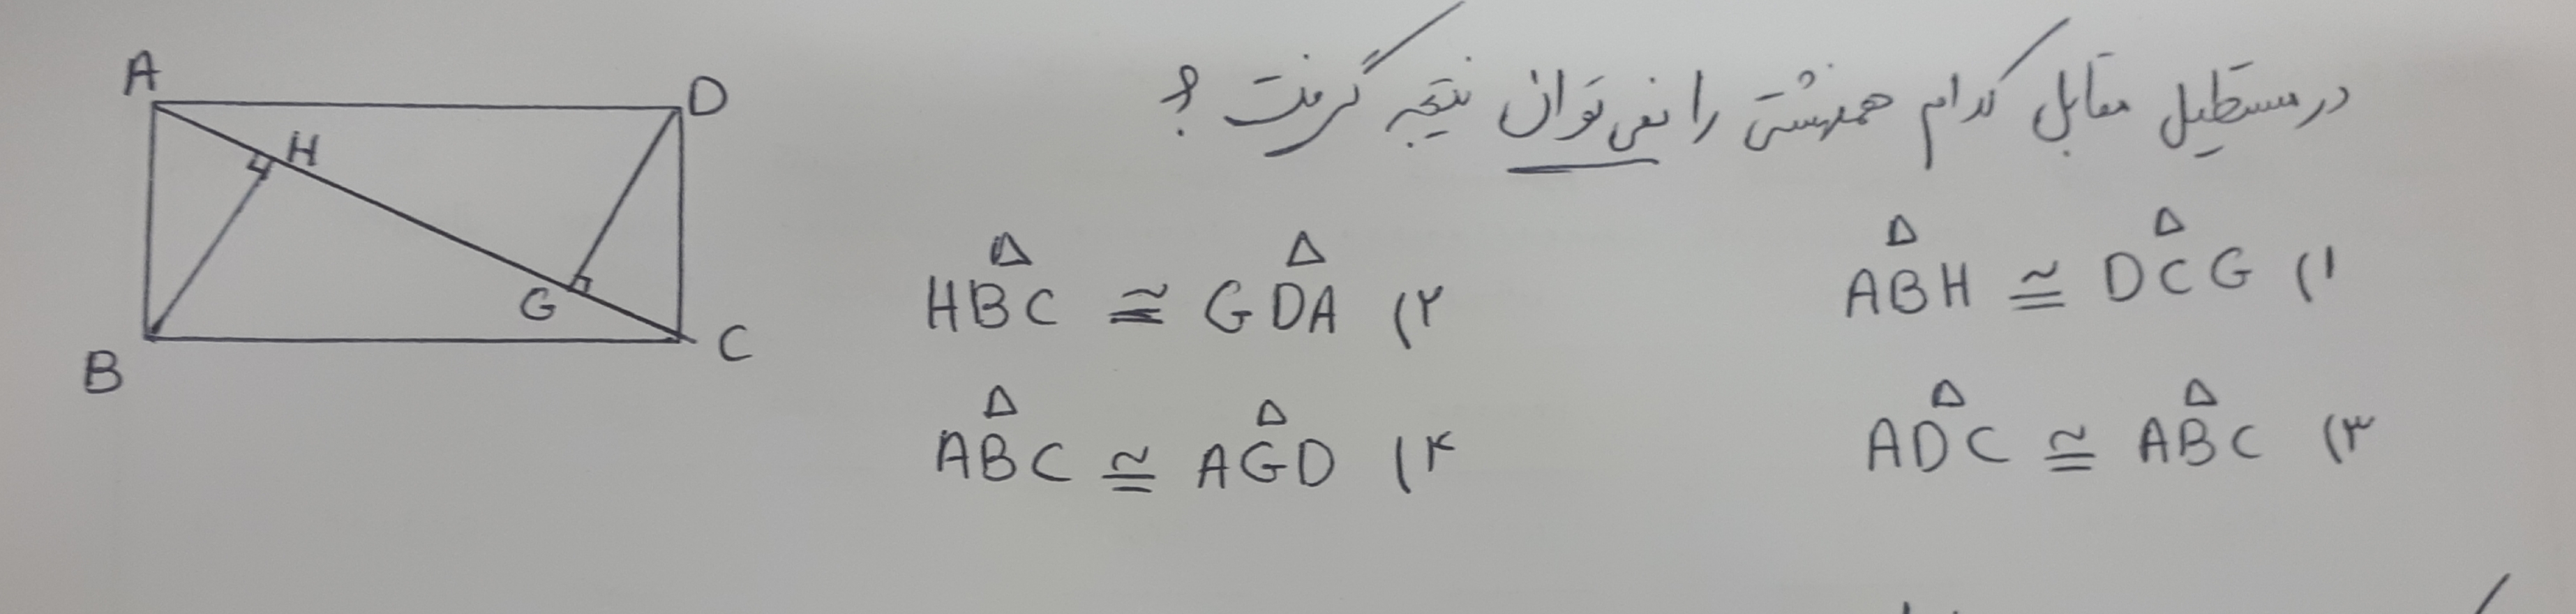 در مستطیل مقابل کدام همنهشتی را نمی‌توان نتیجه گرفت؟
A
D
H
G
B
C
۱) ABH ≅ DCG
۲) HBC ≅ GDA
۳) ADC ≅ ABC
۴) ABC ≅ AGD